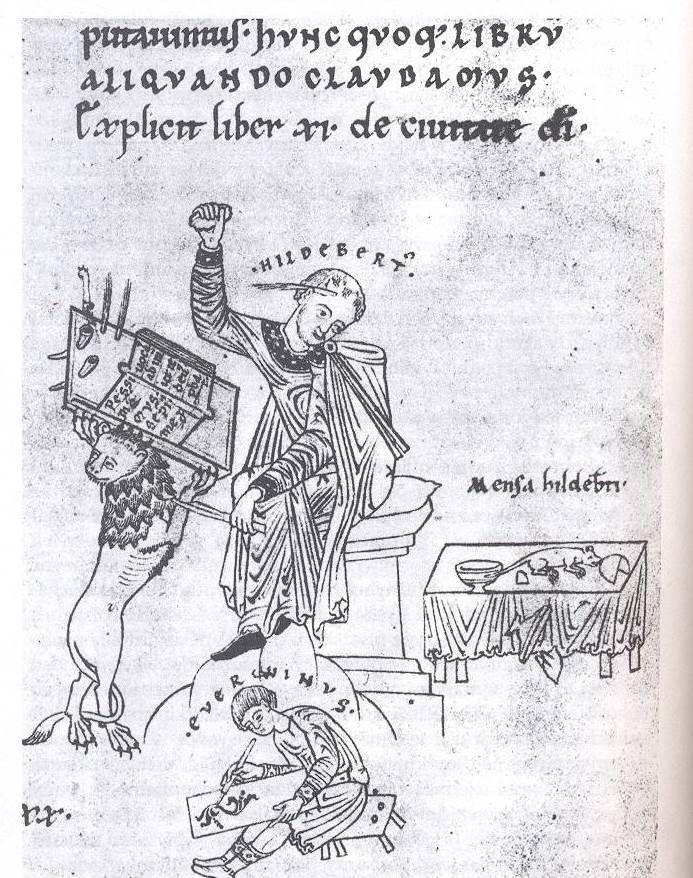 putauimus· HVNC QVOQ· LIBRV
ALIQVANDO CLAVDAMVS·
Explicit liber xi· de ciuitate di·
·HILDEBERT·
Mensa hildebti·
·EVERWINVS·